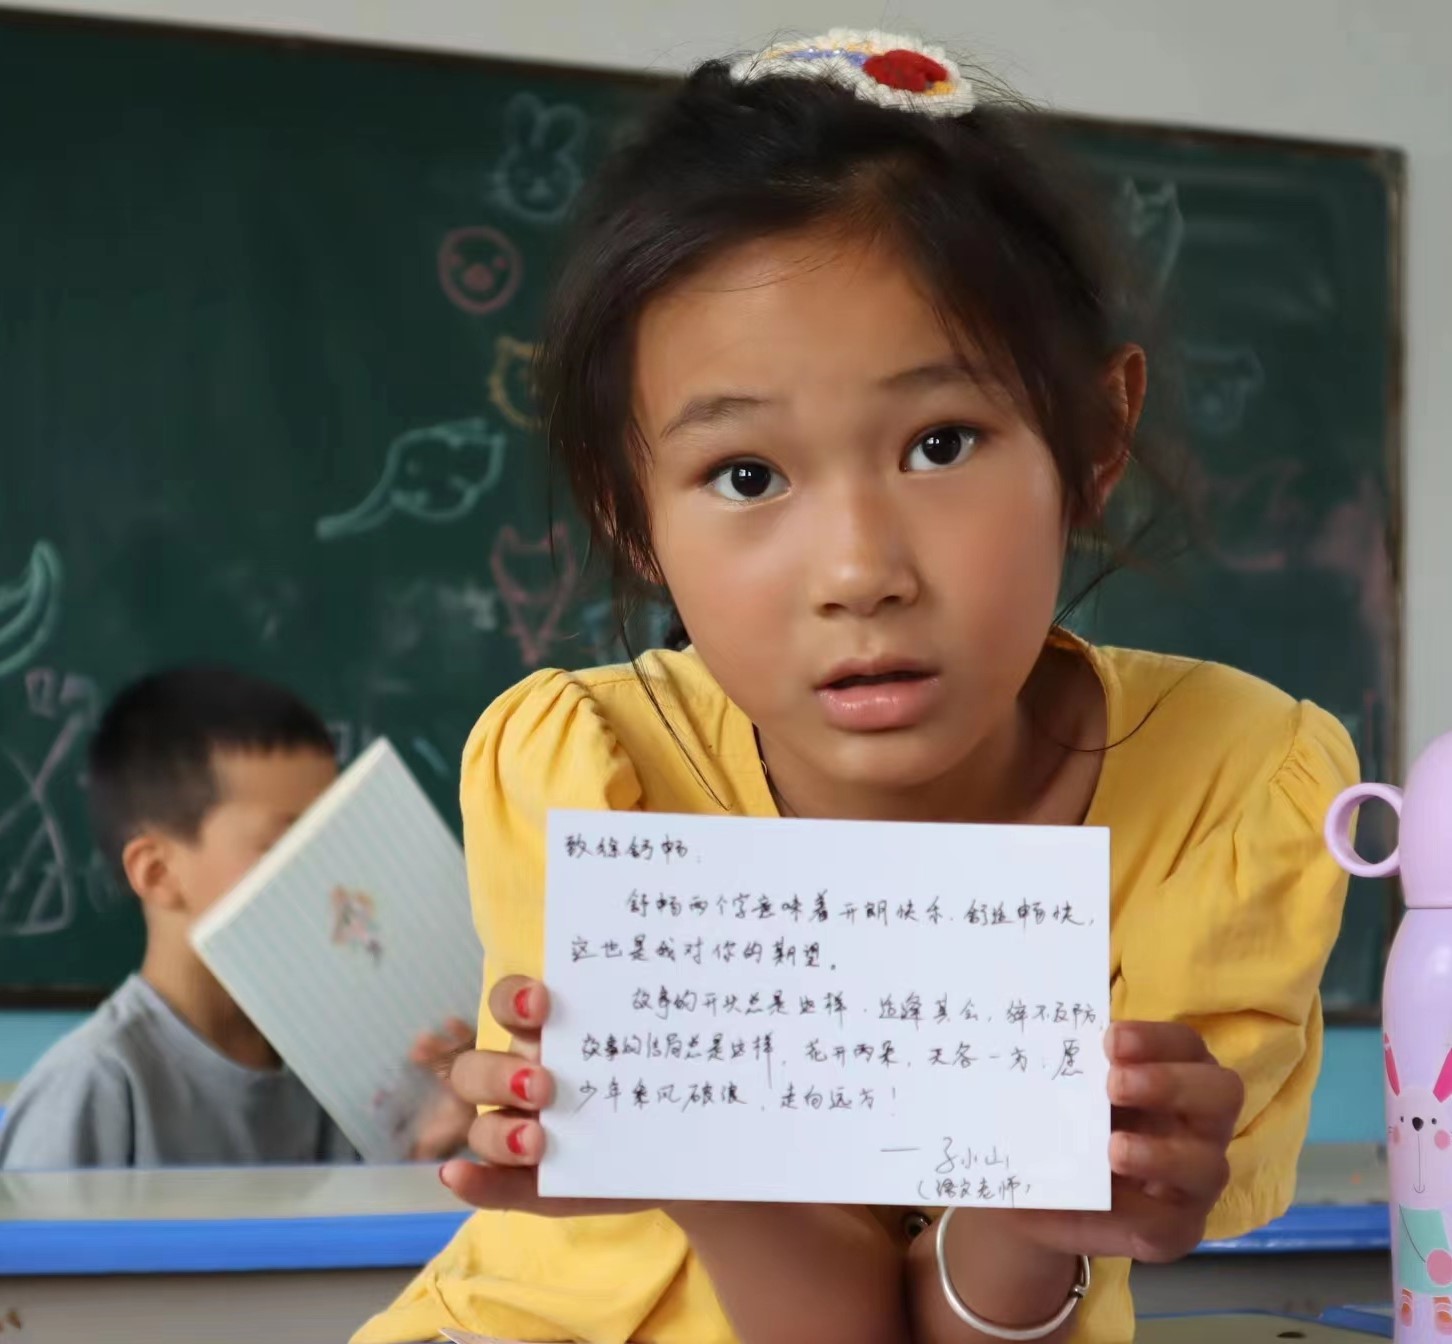 致徐舒畅：
舒畅两个字意味着开朗快乐、舒适畅快，
这也是我对你的期望。
故事的开头总是这样，适逢其会，猝不及防，
故事的结局总是这样，花开两朵，天各一方，愿
少年乘风破浪，走向远方！
—— 孙小山
（语文老师）